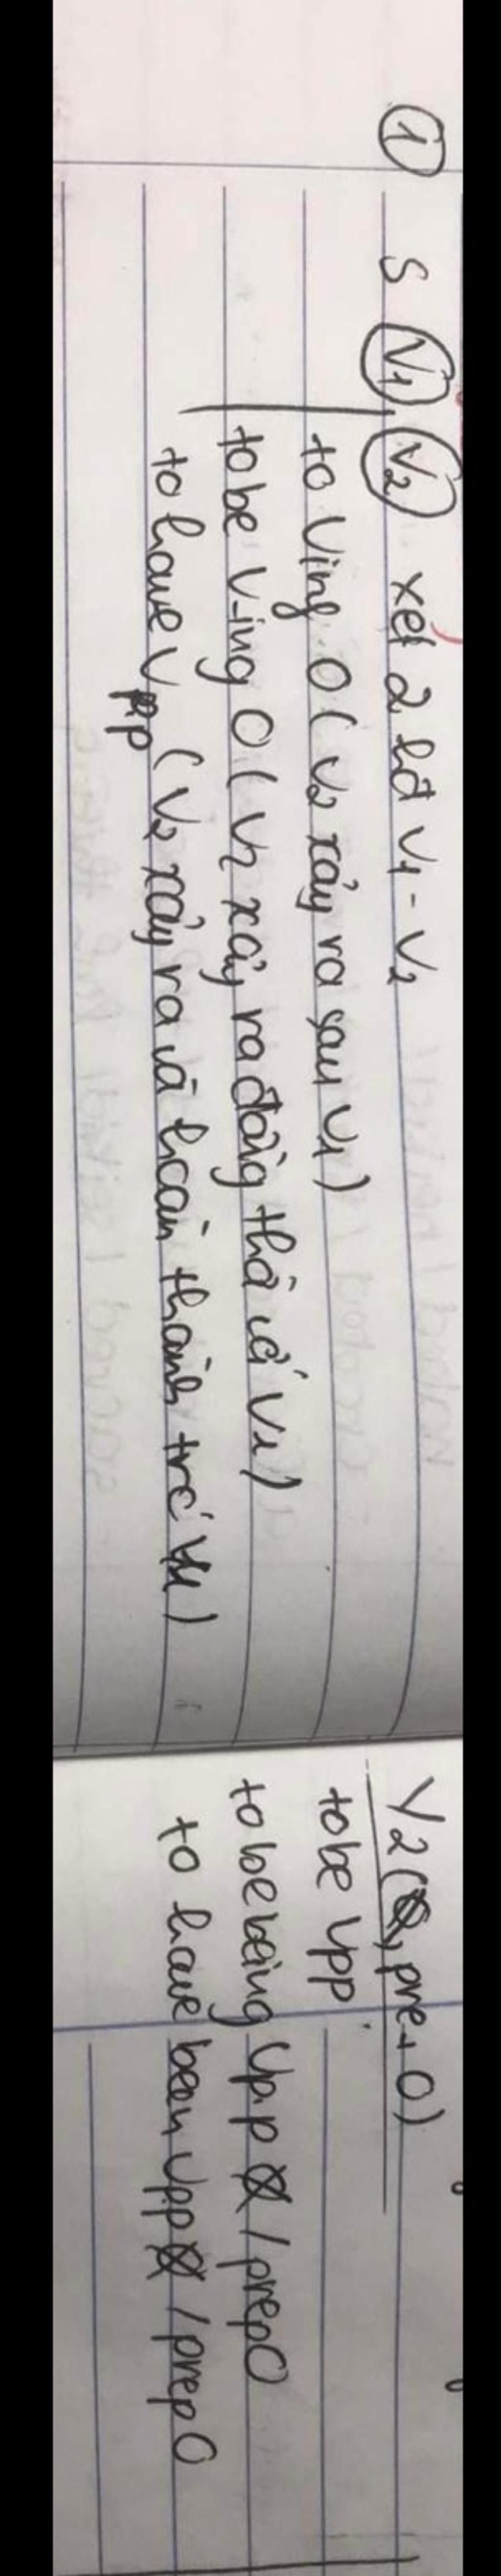 ① S V1, V2 xét 2 hđ V1 - V2
to Ving O ( V2 xảy ra sau V1)
to be V-ing O ( V2 xảy ra đồng thờ vớ V1)
to have Vpp ( V2 xảy ra và hoàn thành trc' V1)
V2 (O, pre + O)
to be Vpp
to be being Vpp O / prep O
to have been Vpp O / prep O